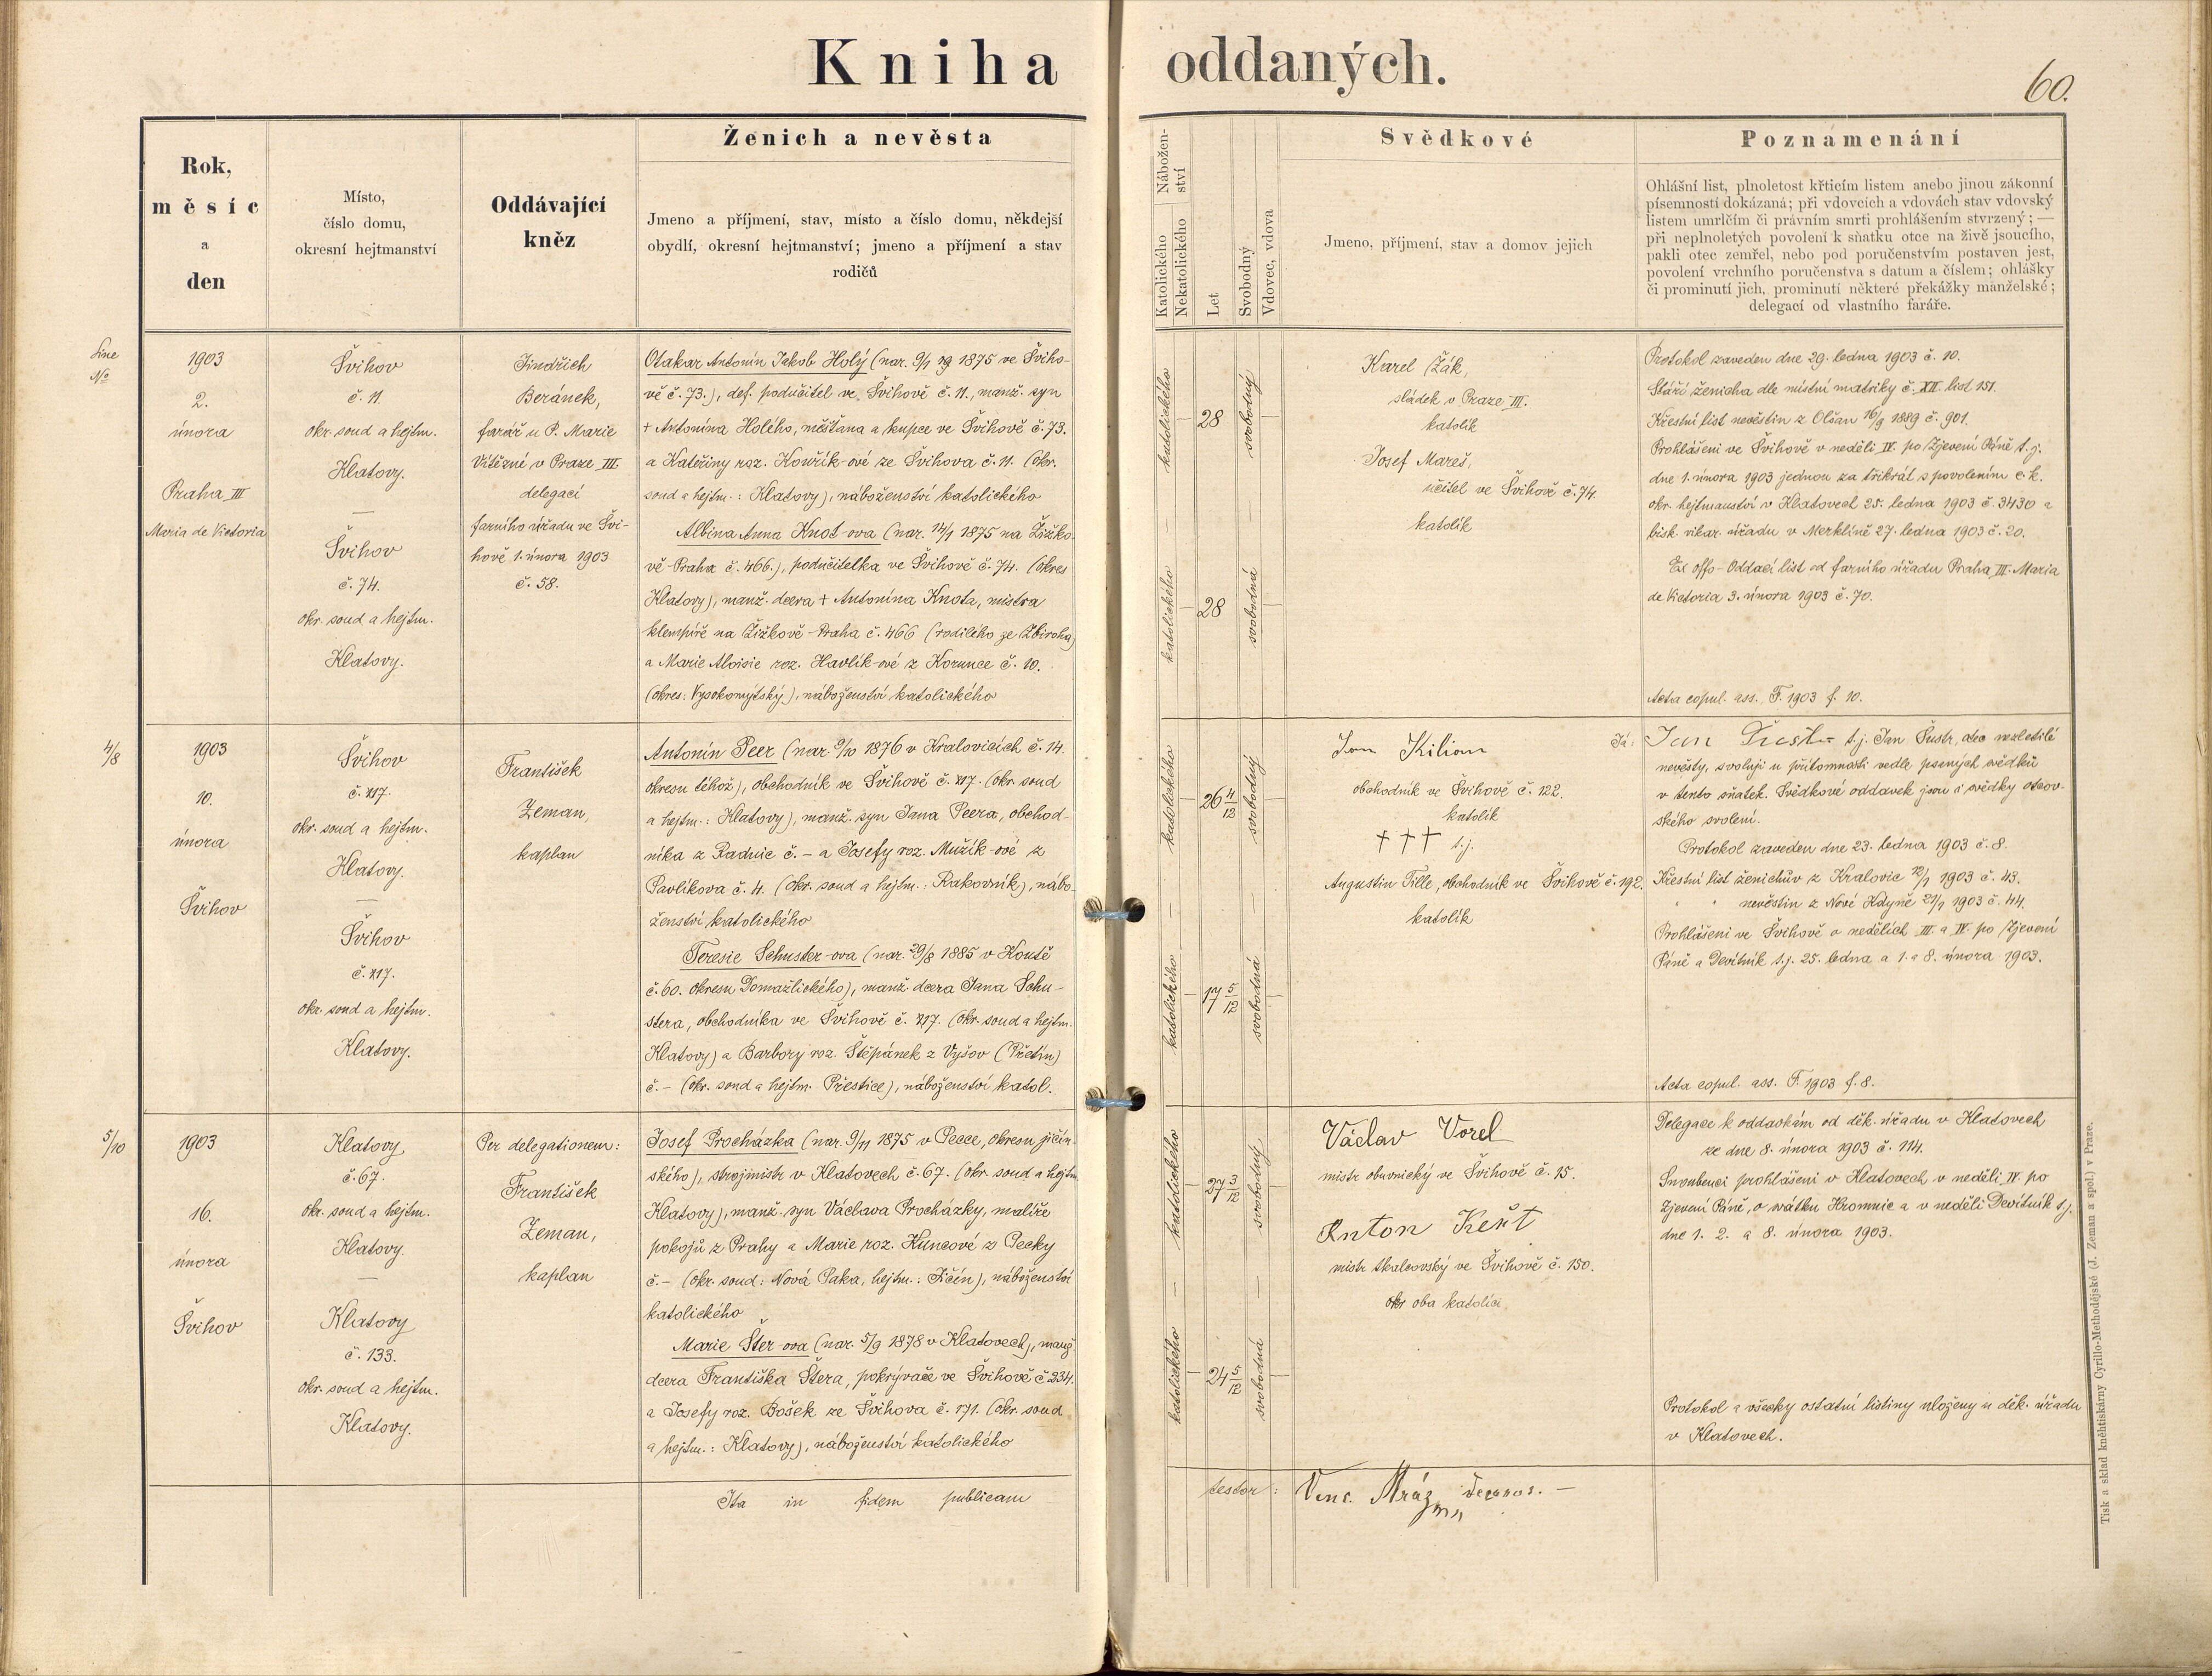 Kniha oddaných.
60.
Rok,
měsíc
a
den
Místo,
číslo domu,
okresní hejtmanství
Oddávající
kněz
Ženich a nevěsta
Jmeno a příjmení, stav, místo a číslo domu, někdejší
obydlí, okresní hejtmanství; jmeno a příjmení a stav
rodičů
Nábožen-
ství
Katolického
Nekatolického
Let
Svobodný
Vdovec, vdova
Svědkové
Jmeno, příjmení, stav a domov jejich
Poznámenání
Ohlášní list, plnoletost křticím listem anebo jinou zákonní
písemností dokázaná; při vdovcích a vdovách stav vdovský
listem umrlčím či právním smrti prohlášením stvrzený; —
při neplnoletých povolení k sňatku otce na živě jsoucího,
pakli otec zemřel, nebo pod poručenstvím postaven jest,
povolení vrchního poručenstva s datum a číslem; ohlášky
či prominutí jich, prominutí některé překážky manželské;
delegací od vlastního faráře.
Sine
No
1903
2.
února
Praha III
Maria de Victoria
Švihov
č. 11.
okr. soud a hejtm.
Klatovy.
—
Švihov
č. 74.
okr. soud a hejtm.
Klatovy.
Jindřich
Beránek,
farář u P. Marie
Vítězné v Praze III.
delegací
farního úřadu ve Švi-
hově 1. února 1903
č. 58.
Otakar Antonín Jakob Holý (nar. 9/7 29 1875 ve Šviho-
vě č. 73.), def. podučitel ve Švihově č. 11., manž. syn
+ Antonína Holého, měšťana a kupce ve Švihově č. 73.
a Kateřiny roz. Kouřík-ové ze Švihova č. 11. (okr.
soud a hejtm.: Klatovy), náboženství katolického
Albina Anna Knot-ova (nar. 14/1 1875 na Žižko-
vě-Praha č. 466.), podučitelka ve Švihově č. 74. (okres
Klatovy), manž. dcera + Antonína Knota, mistra
klempíře na Žižkově-Praha č. 466 (rodilého ze Zbiroha)
a Marie Aloisie roz. Havlík-ové z Korunce č. 10.
(okres: Vysokomýtský), náboženství katolického
katolického
28
svobodný
katolického
28
svobodná
Karel Žák,
sládek v Praze III.
katolík
Josef Mareš,
učitel ve Švihově č. 74.
katolík
Protokol zaveden dne 29. ledna 1903 č. 10.
Stáří ženicha dle místní matriky č. XII. list 151.
Křestní list nevěstin z Olšan 16/9 1889 č. 901.
Prohlášeni ve Švihově v neděli IV. po Zjevení Páně t. j.
dne 1. února 1903 jednou za třikrát s povolením c. k.
okr. hejtmanství v Klatovech 25. ledna 1903 č. 3430 a
bisk. vikar. úřadu v Merklíně 27. ledna 1903 č. 20.
Ex offo - Oddací list od farního úřadu Praha III. Maria
de Victoria 3. února 1903 č. 70.
Acta copul. ass. F. 1903 f. 10.
4/8
1903
10.
února
Švihov
Švihov
č. 217.
okr. soud a hejtm.
Klatovy.
—
Švihov
č. 217.
okr. soud a hejtm.
Klatovy.
František
Zeman,
kaplan
Antonín Peer (nar. 9/10 1876 v Kralovicích č. 14.
okresu téhož), obchodník ve Švihově č. 217. (okr. soud
a hejtm.: Klatovy), manž. syn Jana Peera, obchod-
níka z Radnic č. – a Josefy roz. Mužík-ové z
Pavlíkova č. 4. (okr. soud a hejtm.: Rakovník), nábo-
ženství katolického
Teresie Schuster-ova (nar. 29/8 1885 v Koutě
č. 60. okresu Domažlického), manž. dcera Jana Schu-
stera, obchodníka ve Švihově č. 217. (okr. soud a hejtm.
Klatovy) a Barbory roz. Štěpánek z Vyšov (Přetín)
č. – (okr. soud a hejtm. Přestice), náboženství katol.
katolického
26 4/12
svobodný
katolického
17 5/12
svobodná
Jan Kilian
obchodník ve Švihově č. 122.
katolík
+++ t. j.
Augustin Tille, obchodník ve Švihově č. 192.
katolík
Já: Jan Šustr t. j. Jan Šustr, otec nezletilé
nevěsty, svoluji u přítomnosti vedle psaných svědků
v tento sňatek. Svědkové oddavek jsou i svědky otcov-
ského svolení.
Protokol zaveden dne 23. ledna 1903 č. 8.
Křestní list ženichův z Kralovic 12/1 1903 č. 43.
" " nevěstin z Nové Kdyně 21/1 1903 č. 44.
Prohlášeni ve Švihově o nedělích III. a IV. po Zjevení
Páně a Devítník t. j. 25. ledna a 1. a 8. února 1903.
Acta copul. ass. F. 1903 f. 8.
5/10
1903
16.
února
Švihov
Klatovy
č. 67.
okr. soud a hejtm.
Klatovy.
—
Klatovy
č. 133.
okr. soud a hejtm.
Klatovy.
Per delegationem:
František
Zeman,
kaplan
Josef Procházka (nar. 9/11 1875 v Pecce, okresu jičín-
ského), strojmistr v Klatovech č. 67. (okr. soud a hejtm.
Klatovy), manž. syn Václava Procházky, malíře
pokojů z Prahy a Marie roz. Kuncové z Pecky
č. – (okr. soud: Nová Paka, hejtm.: Jičín), náboženství
katolického
Marie Šter-ova (nar. 5/9 1878 v Klatovech), manž.
dcera Františka Štera, pokrývače ve Švihově č. 234.
a Josefy roz. Bošek ze Švihova č. 171. (okr. soud
a hejtm.: Klatovy), náboženství katolického
katolického
27 3/12
svobodný
katolického
24 5/12
svobodná
Václav Vorel
mistr obuvnický ve Švihově č. 15.
Anton Kešt
mistr tkalcovský ve Švihově č. 150.
oba katolíci
Delegace k oddavkám od děk. úřadu v Klatovech
ze dne 8. února 1903 č. 114.
Snoubenci prohlášeni v Klatovech v neděli IV. po
Zjevení Páně, o svátku Hromnic a v neděli Devítník t. j.
dne 1. 2. a 8. února 1903.
Protokol a všecky ostatní listiny uloženy u děk. úřadu
v Klatovech.
Ita in fidem publicam
testor: Venc. Mráz decanus. —
Tisk a sklad kněhtiskárny Cyrillo-Methodějské (J. Zeman a spol.) v Praze.